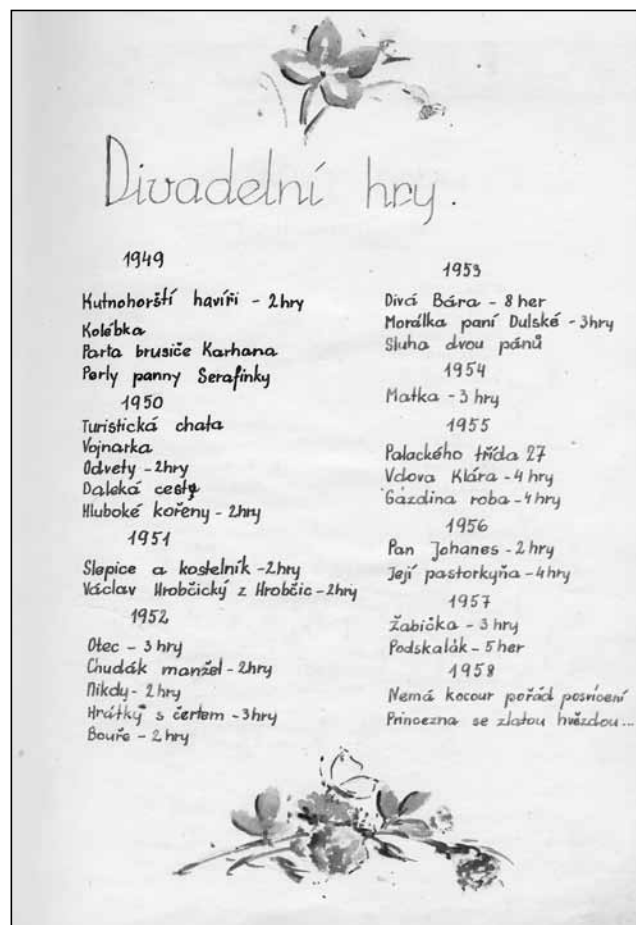 Divadelní hry.
1949
Kutnohorští havíři - 2hry
Kolébka
Parta brusiče Karhana
Perly panny Serafinky
1950
Turistická chata
Vojnarka
Odvety - 2hry
Daleká cesta
Hluboké kořeny - 2hry
1951
Slepice a kostelník - 2hry
Václav Hrobčický z Hrobčic - 2hry
1952
Otec - 3 hry
Chudák manžel - 2hry
Nikdy - 2 hry
Hrátky s čertem - 3hry
Bouře - 2 hry
1953
Divá Bára - 8 her
Morálka paní Dulské - 3hry
Sluha dvou pánů
1954
Matka - 3 hry
1955
Palackého třída 27
Vdova Klára - 4 hry
Gazdina roba - 4hry
1956
Pan Johanes - 2 hry
Její pastorkyňa - 4hry
1957
Žabička - 3 hry
Podskalák - 5 her
1958
Nemá kocour pořád posvícení
Princezna se zlatou hvězdou...